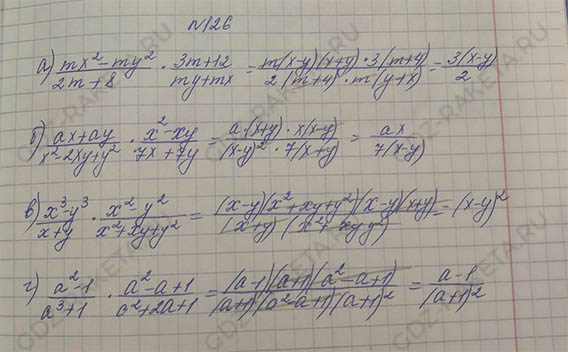 №126
а) (mx² - my²)/(2m + 8) · (3m + 12)/(my + mx) = (m(x-y)(x+y) · 3(m+4))/(2(m+4) · m(y+x)) = 3(x-y)/2
б) (ax + ay)/(x² - 2xy + y²) · (x² - xy)/(7x + 7y) = (a·(x+y) · x(x-y))/((x-y)² · 7(x+y)) = ax/(7(x-y))
в) (x³ - y³)/(x + y) · (x² - y²)/(x² + xy + y²) = ((x-y)(x² + xy + y²)(x-y)(x+y))/((x+y)(x² + xy + y²)) = (x-y)²
г) (a² - 1)/(a³ + 1) · (a² - a + 1)/(a² + 2a + 1) = ((a-1)(a+1)(a² - a + 1))/((a+1)(a² - a + 1)(a+1)²) = (a-1)/(a+1)²
GDZ-RAKETA.RU